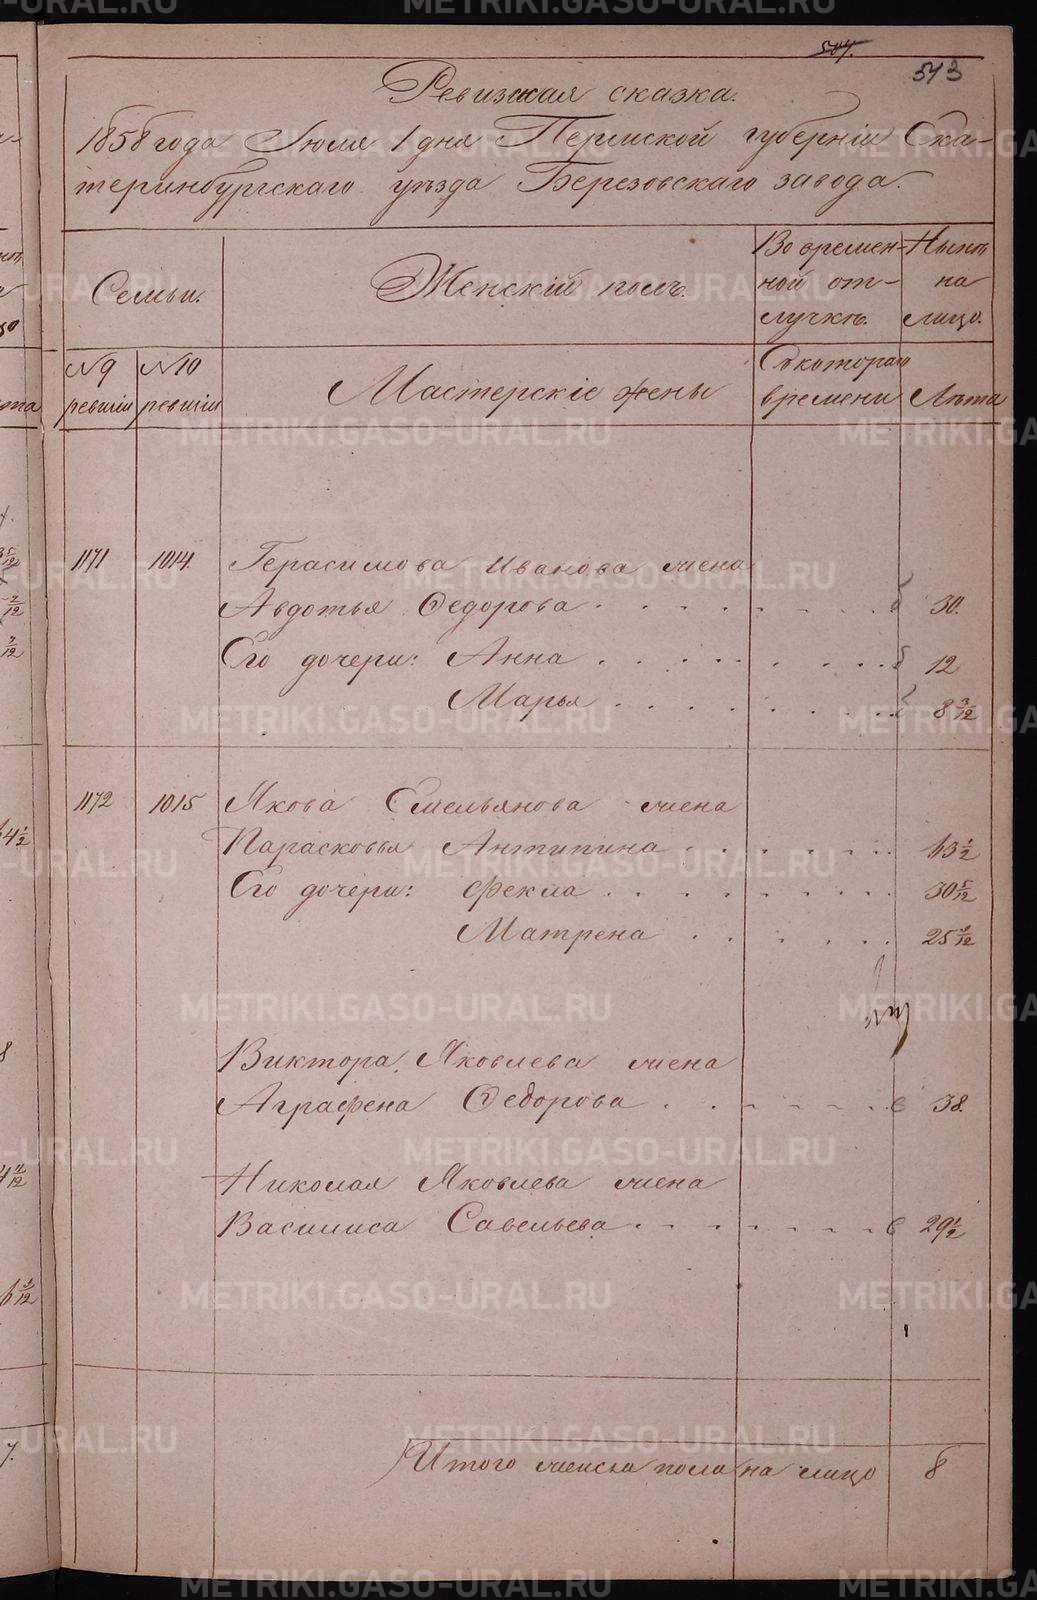 507.
513
Ревизская сказка.
1858 года Июля 1 дня Пермской губерніи Ека-
теринбургскаго уѣзда Березовскаго завода.
Семьи.
Женскій полъ.
Во времен-
ной от-
лучкѣ.
Нынѣ
на
лицо.
№ 9
ревизіи
№ 10
ревизіи
Мастерскіе жены
Съ котораго
времени
Лѣта
1171 1014. Герасимова Иванова жена
Авдотья Федорова 30.
Его дочери: Анна 12
Марья 8 3/12
1172 1015 Якова Емельянова жена
Парасковья Антипина 63 1/2
Его дочери: Фекла 30 5/12
Матрена
Виктора Яковлева жена
Аграфена Федорова в 38.
Николая Яковлева жена
Василиса Савельева в 29 1/2
Итого женска пола на лицо 8
METRIKI.GASO-URAL.RU